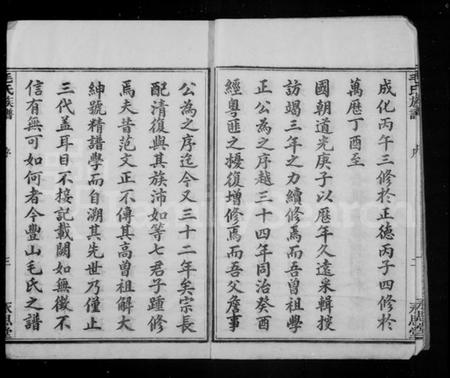 成化丙午三修於正德丙子四修於
萬歷丁酉至
國朝道光庚子以歷年久遠采輯搜
訪竭三年之力續修焉而吾曾祖學
正公為之序越三十四年同治癸酉
經粵匪之擾復增修焉而吾父詹事
公為之序迄今又三十二年矣宗長
配清復與其族沛如等七君子踵修
焉夫昔范文正不傳其高曾祖解大
紳號精譜學而自溯其先世乃僅止
三代蓋耳目不接記載闕如無徵不
信有無可如何者今豐山毛氏之譜
毛氏族譜
三
永思堂